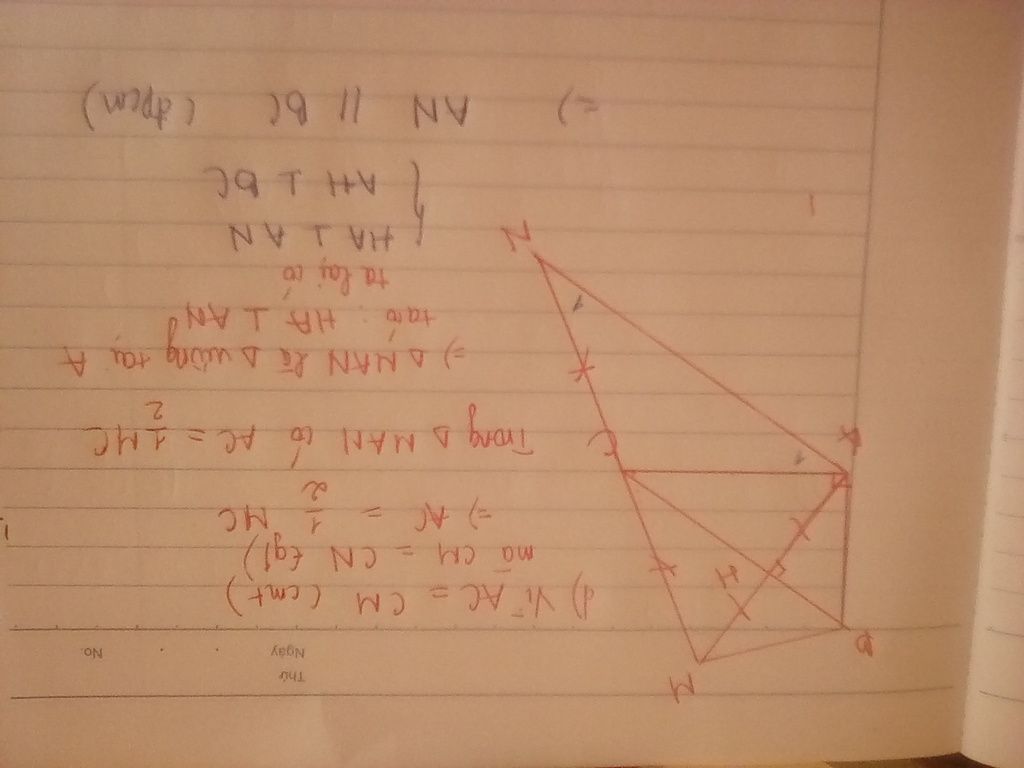 Thứ
Ngày
No.
d) Vì AC = CM (cmt)
mà CM = CN (gt)
=> AC = 1/2 MC
Trong Δ MAN có AC = 1/2 MC
=> Δ MAN là Δ vuông tại A
ta có : HA ⊥ AN
ta lại có
{ HA ⊥ AN
AH ⊥ BC
=> AN // BC (đpcm)
M
B
H
A
1
C
1
N